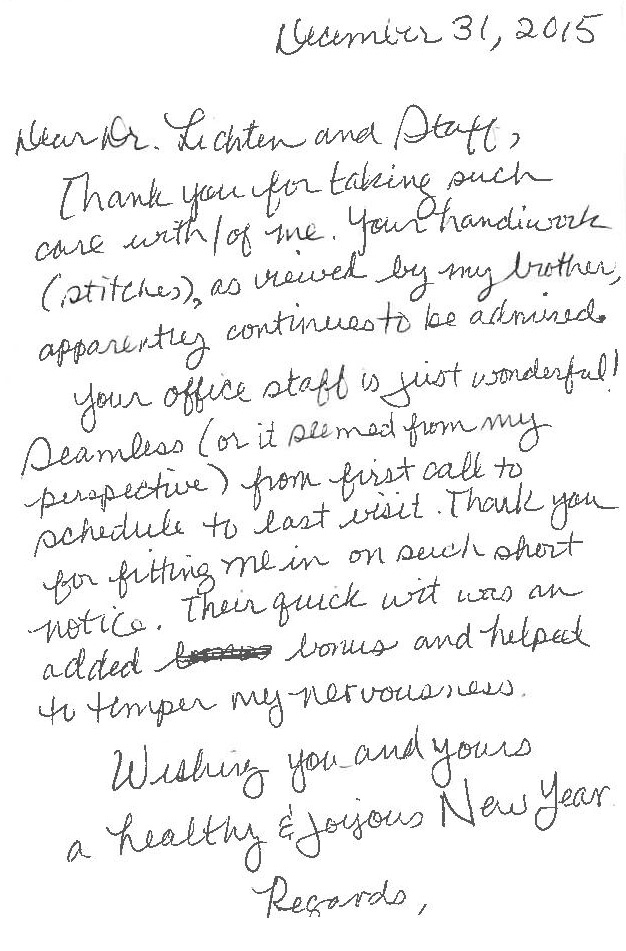 December 31, 2015
Dear Dr. Lichten and Staff,
Thank you for taking such
care with/of me. Your handiwork
(stitches), as viewed by my brother,
apparently continues to be admired.
Your office staff is just wonderful!
Seamless (or it seemed from my
perspective) from first call to
schedule to last visit. Thank you
for fitting me in on such short
notice. Their quick wit was an
added bonus and helped
to temper my nervousness.
Wishing you and yours
a healthy & joyous New Year
Regards,